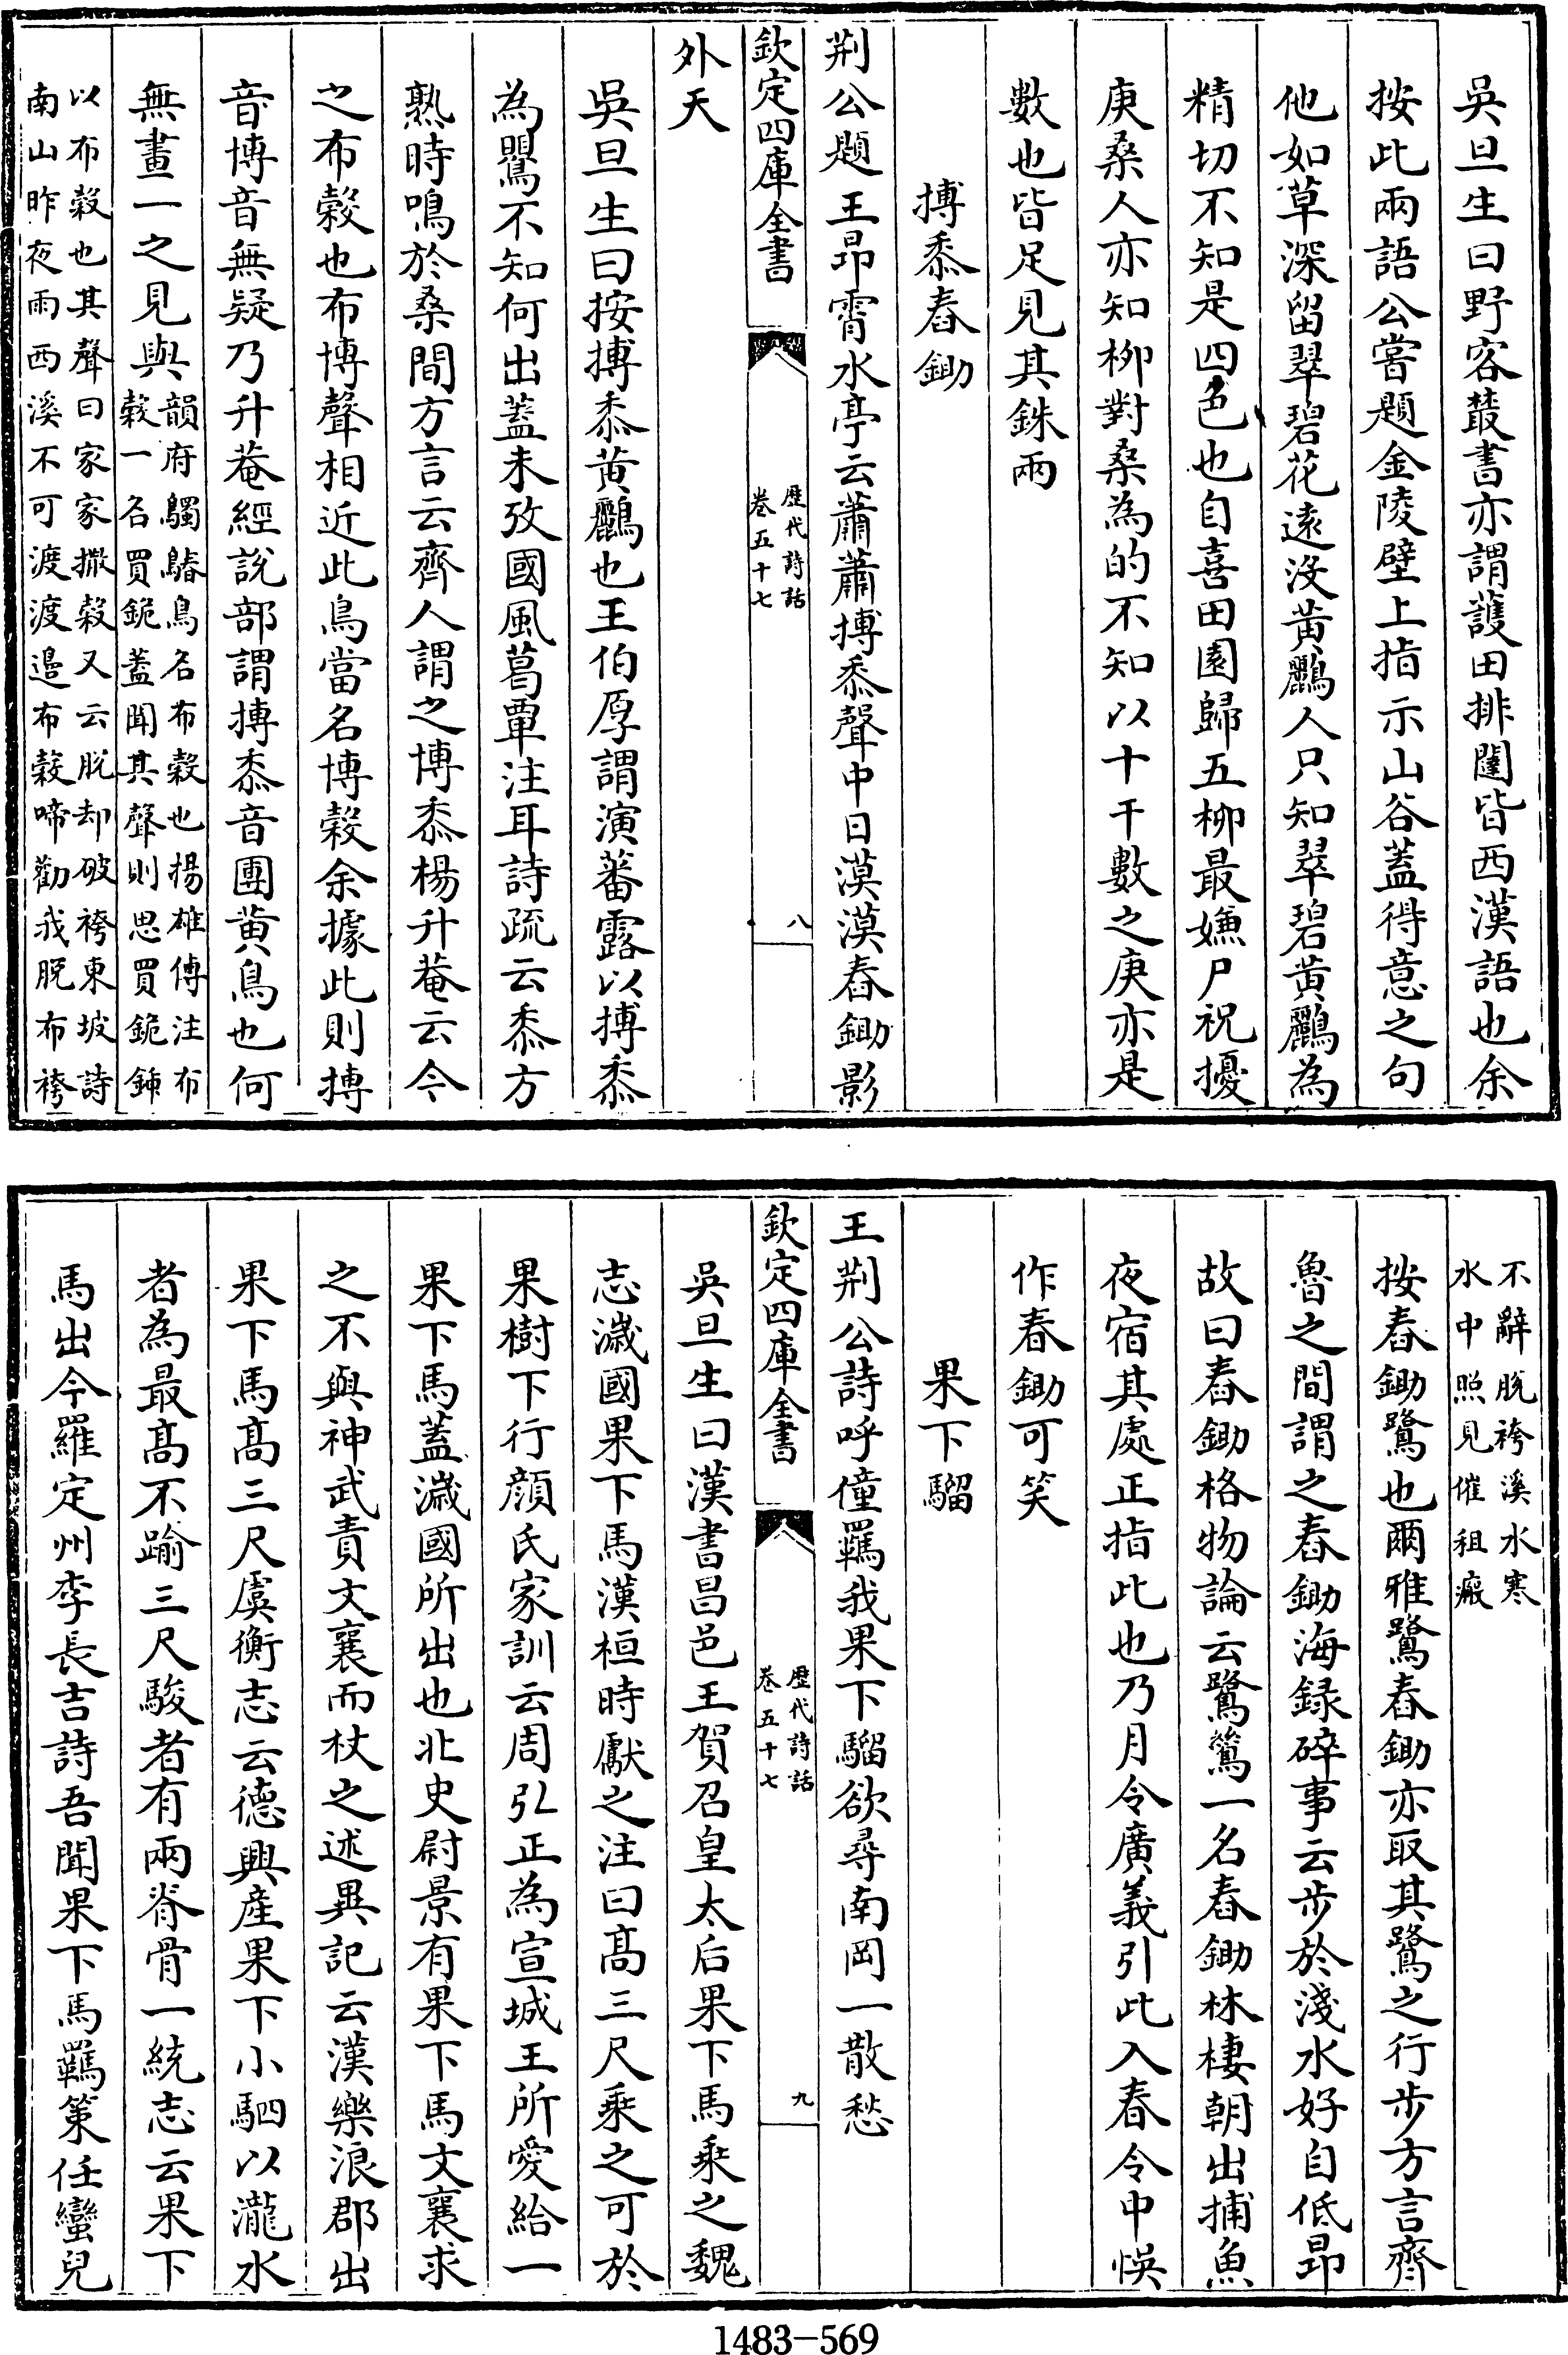 吳旦生曰野客叢書亦謂護田排闥皆西漢語也余
按此兩語公嘗題金陵壁上指示山谷蓋得意之句
他如草深留翠碧花遠沒黃鸝人只知翠碧黃鸝為
精切不知是四色也自喜田園歸五柳最嫌尸祝擾
庚桑人亦知柳對桑為的不知以十干數之庚亦是
數也皆足見其銖兩
搏黍舂鋤
荆公題王昂霄水亭云蕭蕭搏黍聲中日漠漠舂鋤影
欽定四庫全書
歴代詩話
卷五十七
八
外天
吳旦生曰按搏黍黃鸝也王伯厚謂演蕃露以搏黍
為鸎不知何出蓋未攷國風葛覃注耳詩疏云黍方
熟時鳴於桑間方言云齊人謂之博黍楊升菴云今
之布穀也布博聲相近此鳥當名博穀余據此則搏
音博音無疑乃升菴經說部謂搏黍音團黃鳥也何
無畫一之見與
韻府鸀䳠鳥名布穀也揚雄傳注布
穀一名買䤥蓋聞其聲則思買䤥鍤
以布穀也其聲曰家家撒穀又云脫却破袴東坡詩
南山昨夜雨西溪不可渡渡邉布穀啼勸我脫布袴
不辭脫袴溪水寒
水中照見催租瘢
按舂鋤鷺也爾雅鷺舂鋤亦取其鷺之行步方言齊
魯之間謂之舂鋤海録碎事云步於淺水好自低昂
故曰舂鋤格物論云鷺鶿一名舂鋤林棲朝出捕魚
夜宿其處正指此也乃月令廣義引此入春令中悞
作春鋤可笑
果下騮
王荆公詩呼僮羈我果下騮欲尋南岡一散愁
欽定四庫全書
歴代詩話
卷五十七
九
吳旦生曰漢書昌邑王賀召皇太后果下馬乘之魏
志濊國果下馬漢桓時獻之注曰髙三尺乘之可於
果樹下行顔氏家訓云周弘正為宣城王所愛給一
果下馬蓋濊國所出也北史尉景有果下馬文襄求
之不與神武責文襄而杖之述異記云漢樂浪郡出
果下馬髙三尺虞衡志云德興產果下小駟以瀧水
者為最髙不踰三尺駿者有兩脊骨一統志云果下
馬出今羅定州李長吉詩吾聞果下馬羈策任蠻兒
1483-569